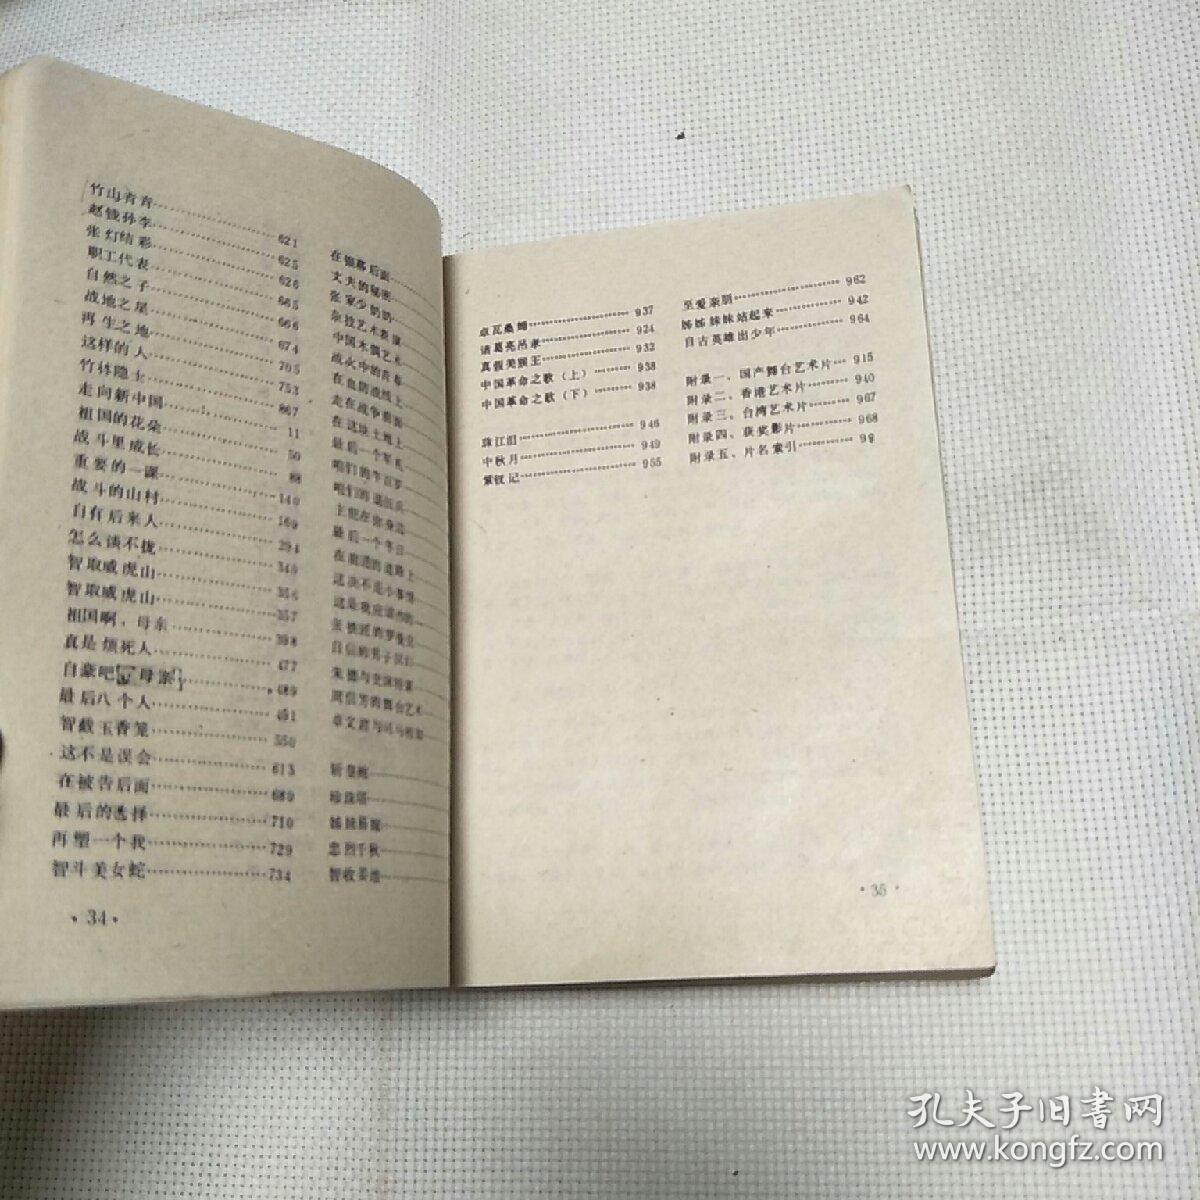 竹山青青
赵钱孙李……621
张灯结彩……625
职工代表……626
自然之子……665
战地之星……666
再生之地……674
这样的人……705
竹林隐士……753
走向新中国……867
祖国的花朵……11
战斗里成长……50
重要的一课……88
战斗的山村……140
自有后来人……169
怎么谈不拢……294
智取威虎山……340
智取威虎山……356
祖国啊，母亲……357
真是烦死人……398
自豪吧，母亲……477
最后八个人……489
智截玉香笼……491
这不是误会……550
在被告后面……613
最后的选择……689
再塑一个我……710
智斗美女蛇……729
734
·34·
在银幕后面
丈夫的秘密
张家少奶奶
杂技艺术表演
中国木偶艺术
战火中的青春
在血防战线上
走在战争前面
在这块土地上
最后一个军礼
咱们的牛百岁
咱们的退伍兵
主犯在你身边
最后一个冬日
在前进的道路上
这决不是小事情
自信的男子汉们
朱德与史沫特莱
周信芳的舞台艺术
卓文君与司马相如
斩皇袍
珍珠塔
姊妹易嫁
忠烈千秋
智收姜维
卓瓦桑姆……937
诸葛亮吊孝……924
真假美猴王……932
中国革命之歌（上）……938
中国革命之歌（下）……938
珠江泪……946
中秋月……949
紫钗记……955
至爱亲朋……962
姊姊妹妹站起来……942
自古英雄出少年……964
附录一、国产舞台艺术片……915
附录二、香港艺术片……940
附录三、台湾艺术片……967
附录四、获奖影片……968
附录五、片名索引
·35·
孔夫子旧書网
www.kongfz.com